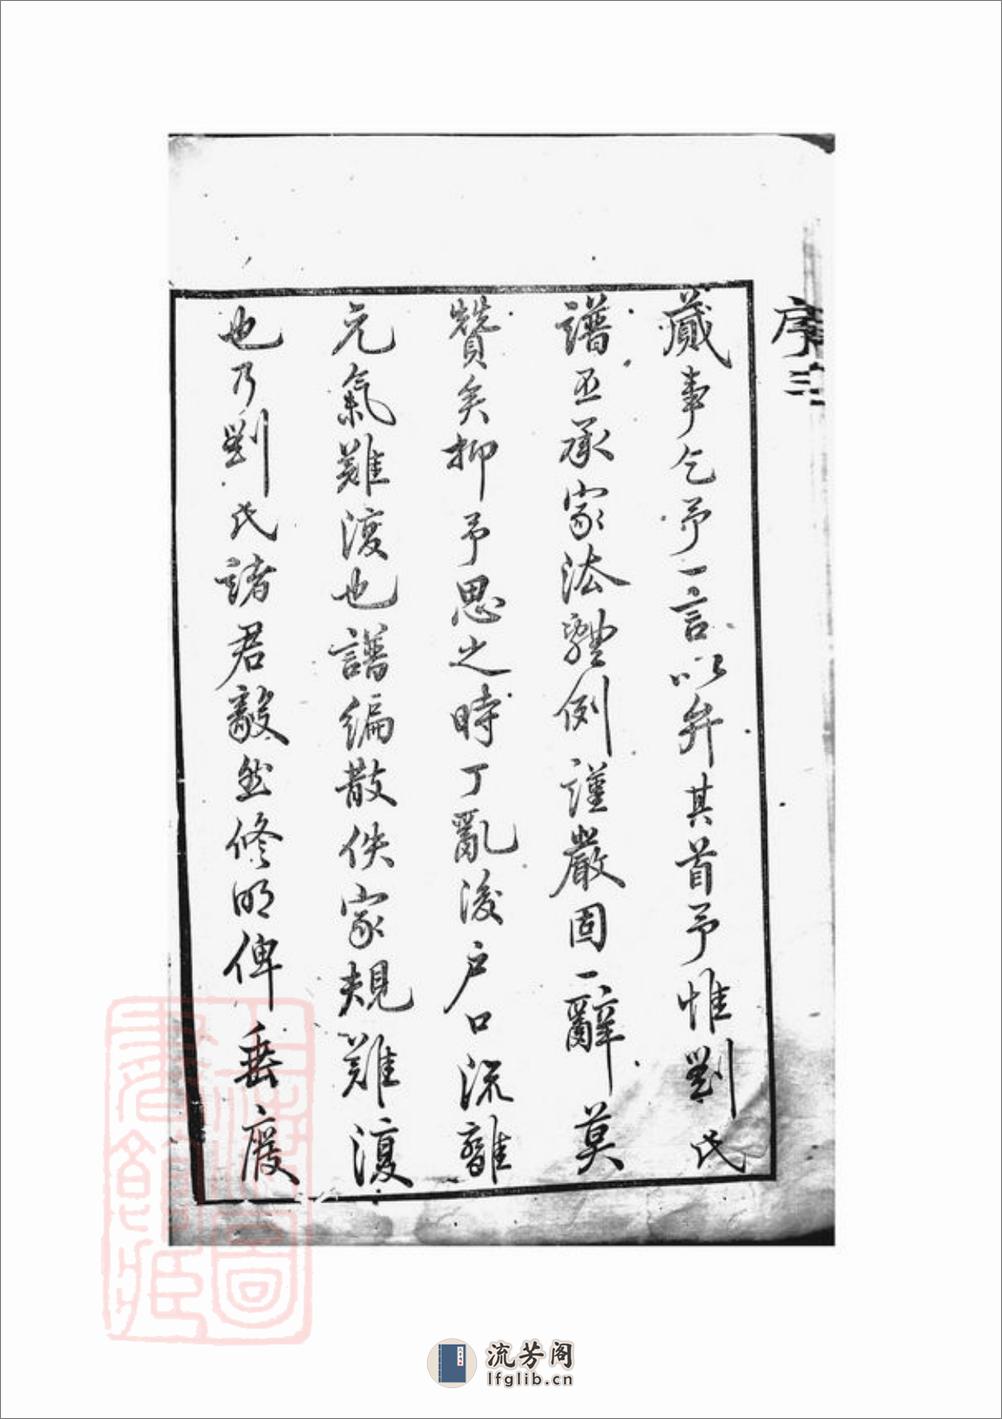 序 三
蕆事乞予一言以弁其首予惟劉氏
譜丕承家法體例謹嚴固一辭莫
贊矣抑予思之時丁亂後户口流離
元氣難復也譜編散佚家規難復
也乃劉氏諸君毅然修明俾垂廢
流芳阁
lfglib.cn